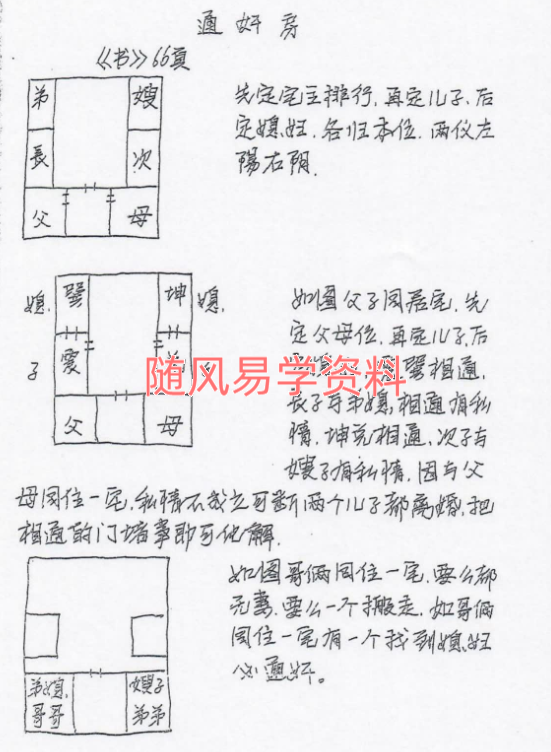 通奸房
《书》66頁
弟 嫂
長 次
父 母
先定宅主排行,再定儿子,后
定媳妇,各归本位,两仪左
陽右阴.
媳 巽 坤 媳
子 震
父 母
如图父子同居宅,先
定父母位,再定儿子,后
巽相通,
随风易学资料
長子与弟媳相通有私
情,坤兑相通,次子与
嫂子有私情,因与父
母同住一宅,私情不成立可断两个儿子都离婚,把
相通的门堵事即可化解.
如图哥俩同住一宅,要么都
无妻,要么一个搬走,如哥俩
同住一宅有一个找到媳妇
必通奸。
弟媳 嫂子
哥哥 弟弟